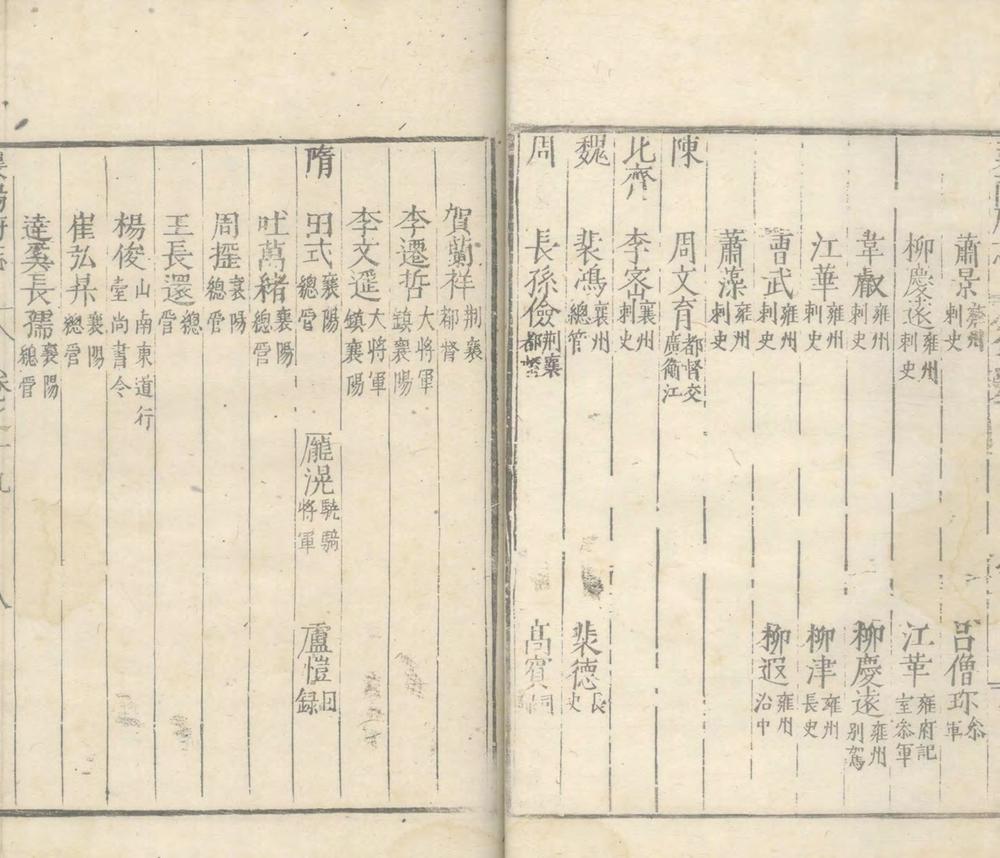 蕭景 刺史 呂僧珍 參軍
柳慶遠 雍州刺史 江革 雍府記室參軍
韋叡 雍州刺史 柳慶遠 雍州別駕
江華 雍州刺史 柳津 雍州長史
曹武 雍州刺史 柳遐 雍州治中
蕭藻 雍州刺史
陳 周文育 都督交廣衡江
北齊 李宻 襄州刺史
魏 裴鴻 襄州總管 裴德 長史
周 長孫儉 荆襄都督 髙賓
賀蘭祥 荆襄都督
李遷哲 大將軍鎮襄陽
李文遥 大將軍鎮襄陽
隋 田式 襄陽總管 龐滉 驍騎將軍 盧愷 日録
吐萬緒 襄陽總管
周摇 襄陽總管
王長還 總管
楊俊 山南東道行臺尚書令
崔弘昇 襄陽總管
達奚長孺 襄陽總管